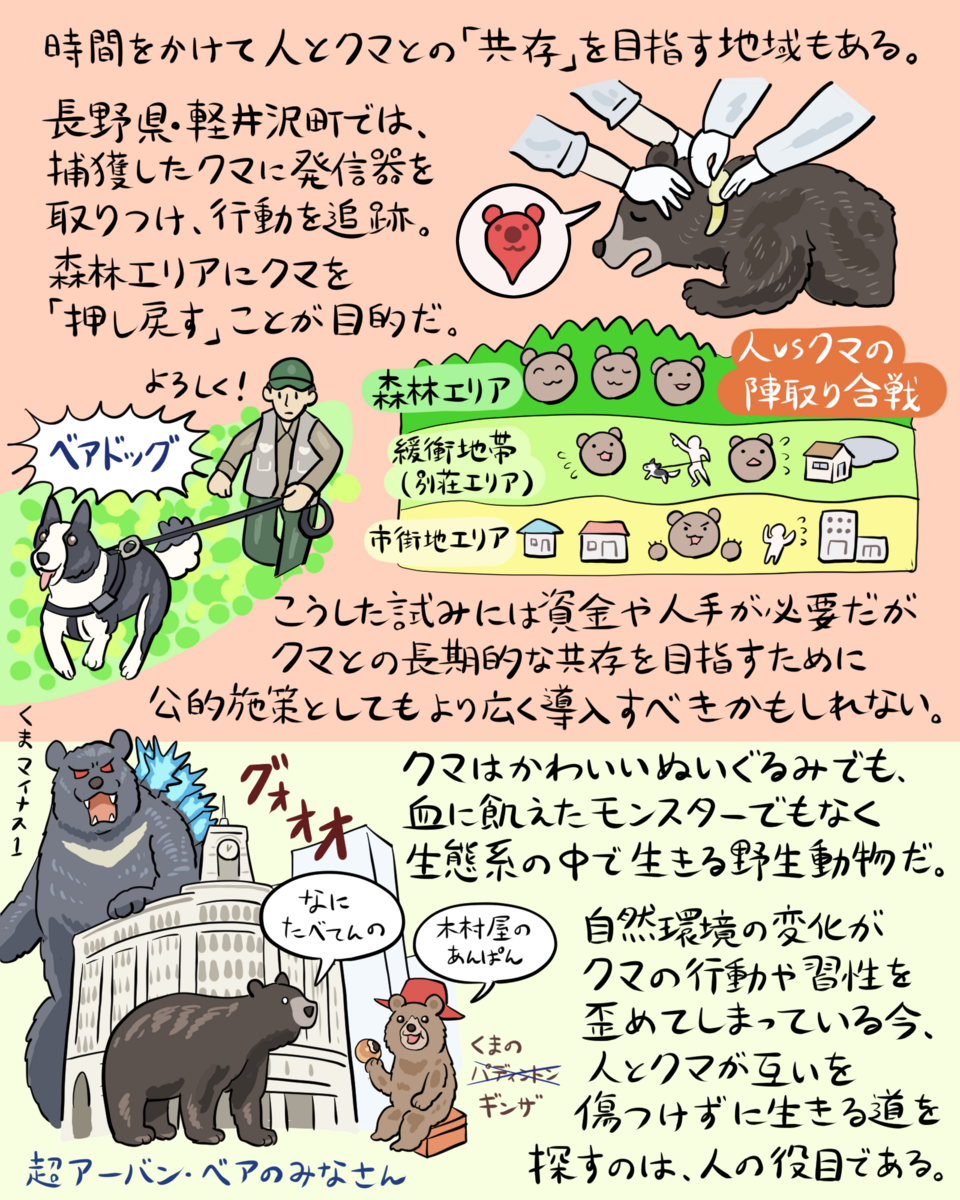 時間をかけて人とクマとの「共存」を目指す地域もある。
長野県・軽井沢町では、
捕獲したクマに発信器を
取りつけ、行動を追跡。
森林エリアにクマを
「押し戻す」ことが目的だ。
よろしく!
ベアドッグ
人vsクマの
陣取り合戦
森林エリア
緩衝地帯
(別荘エリア)
市街地エリア
こうした試みには資金や人手が必要だが
クマとの長期的な共存を目指すために
公的施策としてもより広く導入すべきかもしれない。
くまマイナス1
グォオオ
クマはかわいいぬいぐるみでも、
血に飢えたモンスターでもなく
生態系の中で生きる野生動物だ。
なに
たべてんの
木村屋の
あんぱん
くまの
パディントン
ギンザ
自然環境の変化が
クマの行動や習性を
歪めてしまっている今、
人とクマが互いを
傷つけずに生きる道を
探すのは、人の役目である。
超アーバン・ベアのみなさん